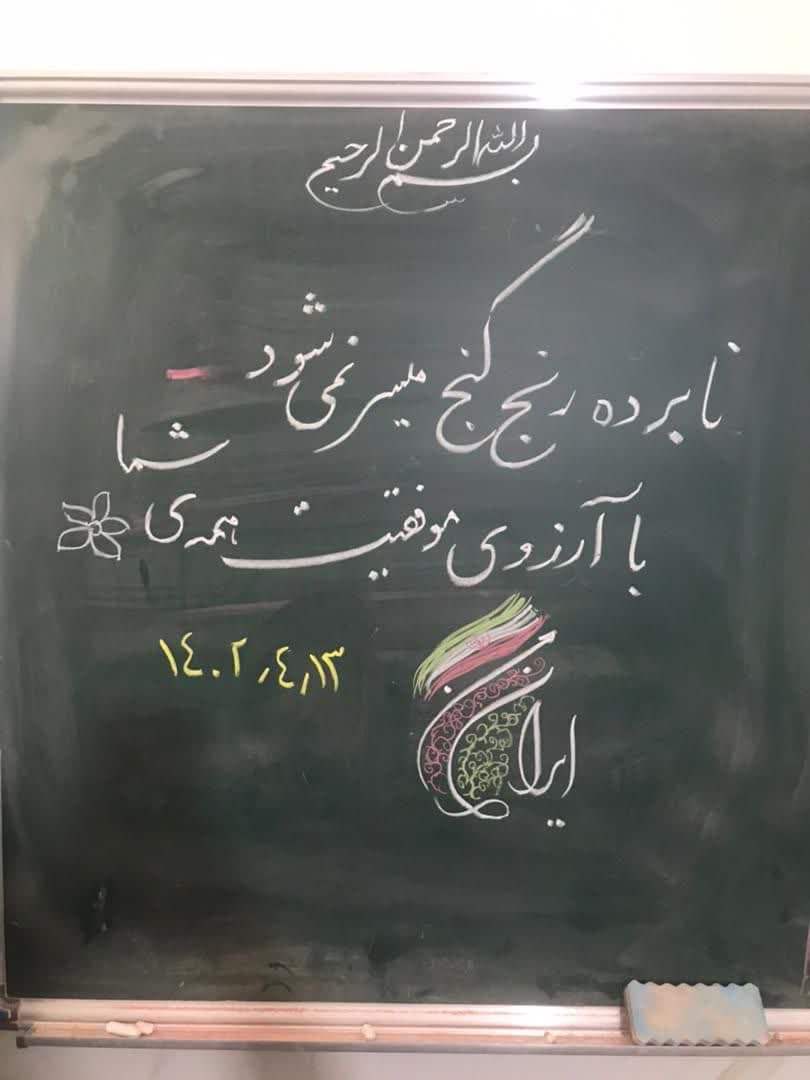 بسم الله الرحمن الرحیم
نابرده رنج گنج میسر نمی شود -
با آرزوی موفقیت همه ی شما
۱۴۰۲٫۴٫۱۳
ایران